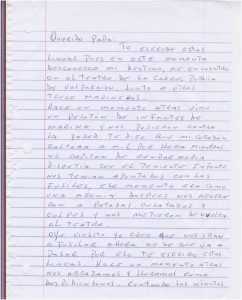 Querido Papá:
Te escribo estas
lineas pues en este momento
desconosco mi destino, me encuentro
en el teatro de la Carcel Publica
de Valparaiso junto a otros
trece marineros.
Hace un momento atras vino
un peloton de infantes de
marina y nos pusieron contra
la pared te digo que mi corazon
saltaba a mil por hora mientras
el capitan de gendarmeria
discutia con el teniente infante
nos tenian apuntados con los
fusiles, ese momento era como
una agonia despues nos
a patadas culatazos y
golpes y nos metieron de vuelta
al teatro.
que viejito yo creo que nos iban
a fusilar ahora no se que va a
pasar por eso te escribo estas
lineas. Hace un momento atras
nos abrazamos y lloramos como
dos contando los minutos